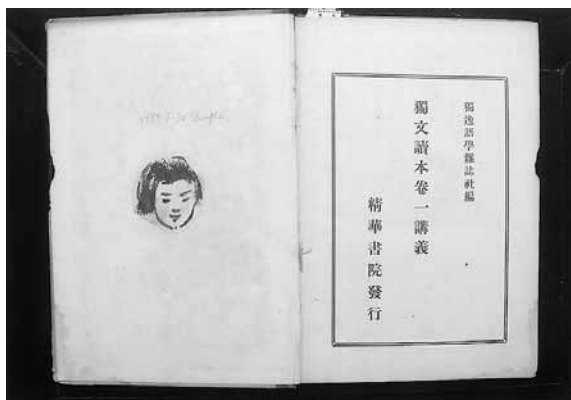 獨逸語學雜誌社編
獨文讀本卷一講義
精華書院發行